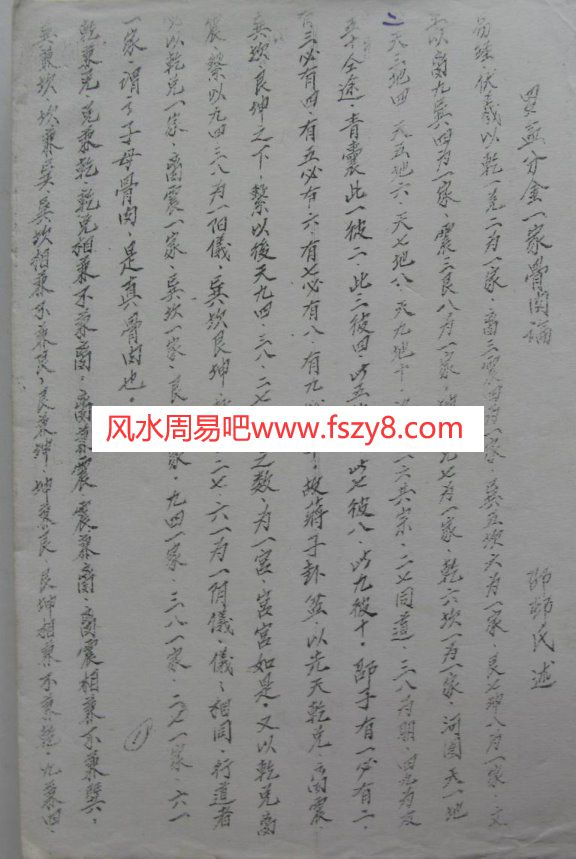 罡金分金一家骨肉論
邵邨氏述
易経伏羲以乾一兑二为一家、离三震四为一家、巽五坎六为一家、艮七坤八为一家、文
王以离九巽四为一家、震三艮八为一家、坤二兑七为一家、乾六坎一为一家、河图天一地
二天三地四、天五地六、天七地八、天九地十、一六共宗、二七同道、三八为朋、四九为友
五十全途、青囊此一彼二、此三彼四、此五此七彼八、此九彼十、邵子有一必有二、
有三必有四、有五必有六、有七必有八、有九故蒋子卦盆、以先天乾兑离震、
巽坎艮坤之下、繫以後天九四、三八、二七之数、为一宫、宫宫如是、又以乾兑离
震、繫以九四三八为一阳儀、巽坎艮坤二七、六一为一阴儀、儀儀相関、行道者
必以乾兑一家、离震一家、巽坎一家、艮家、九四一家、三八一家、二七一家、六一
一家、谓之子母骨肉、是真骨肉也。
乾兼兑、兑兼乾、乾兑相兼不兼离、离兼震、震兼离、离震相兼不兼巽、
巽兼坎、坎兼巽、巽坎相兼不兼艮、艮兼坤、坤兼艮、艮坤相兼不兼乾、九兼四、
(1)
风水周易吧www.fszy8.com
官方网址:www.fszy8.com